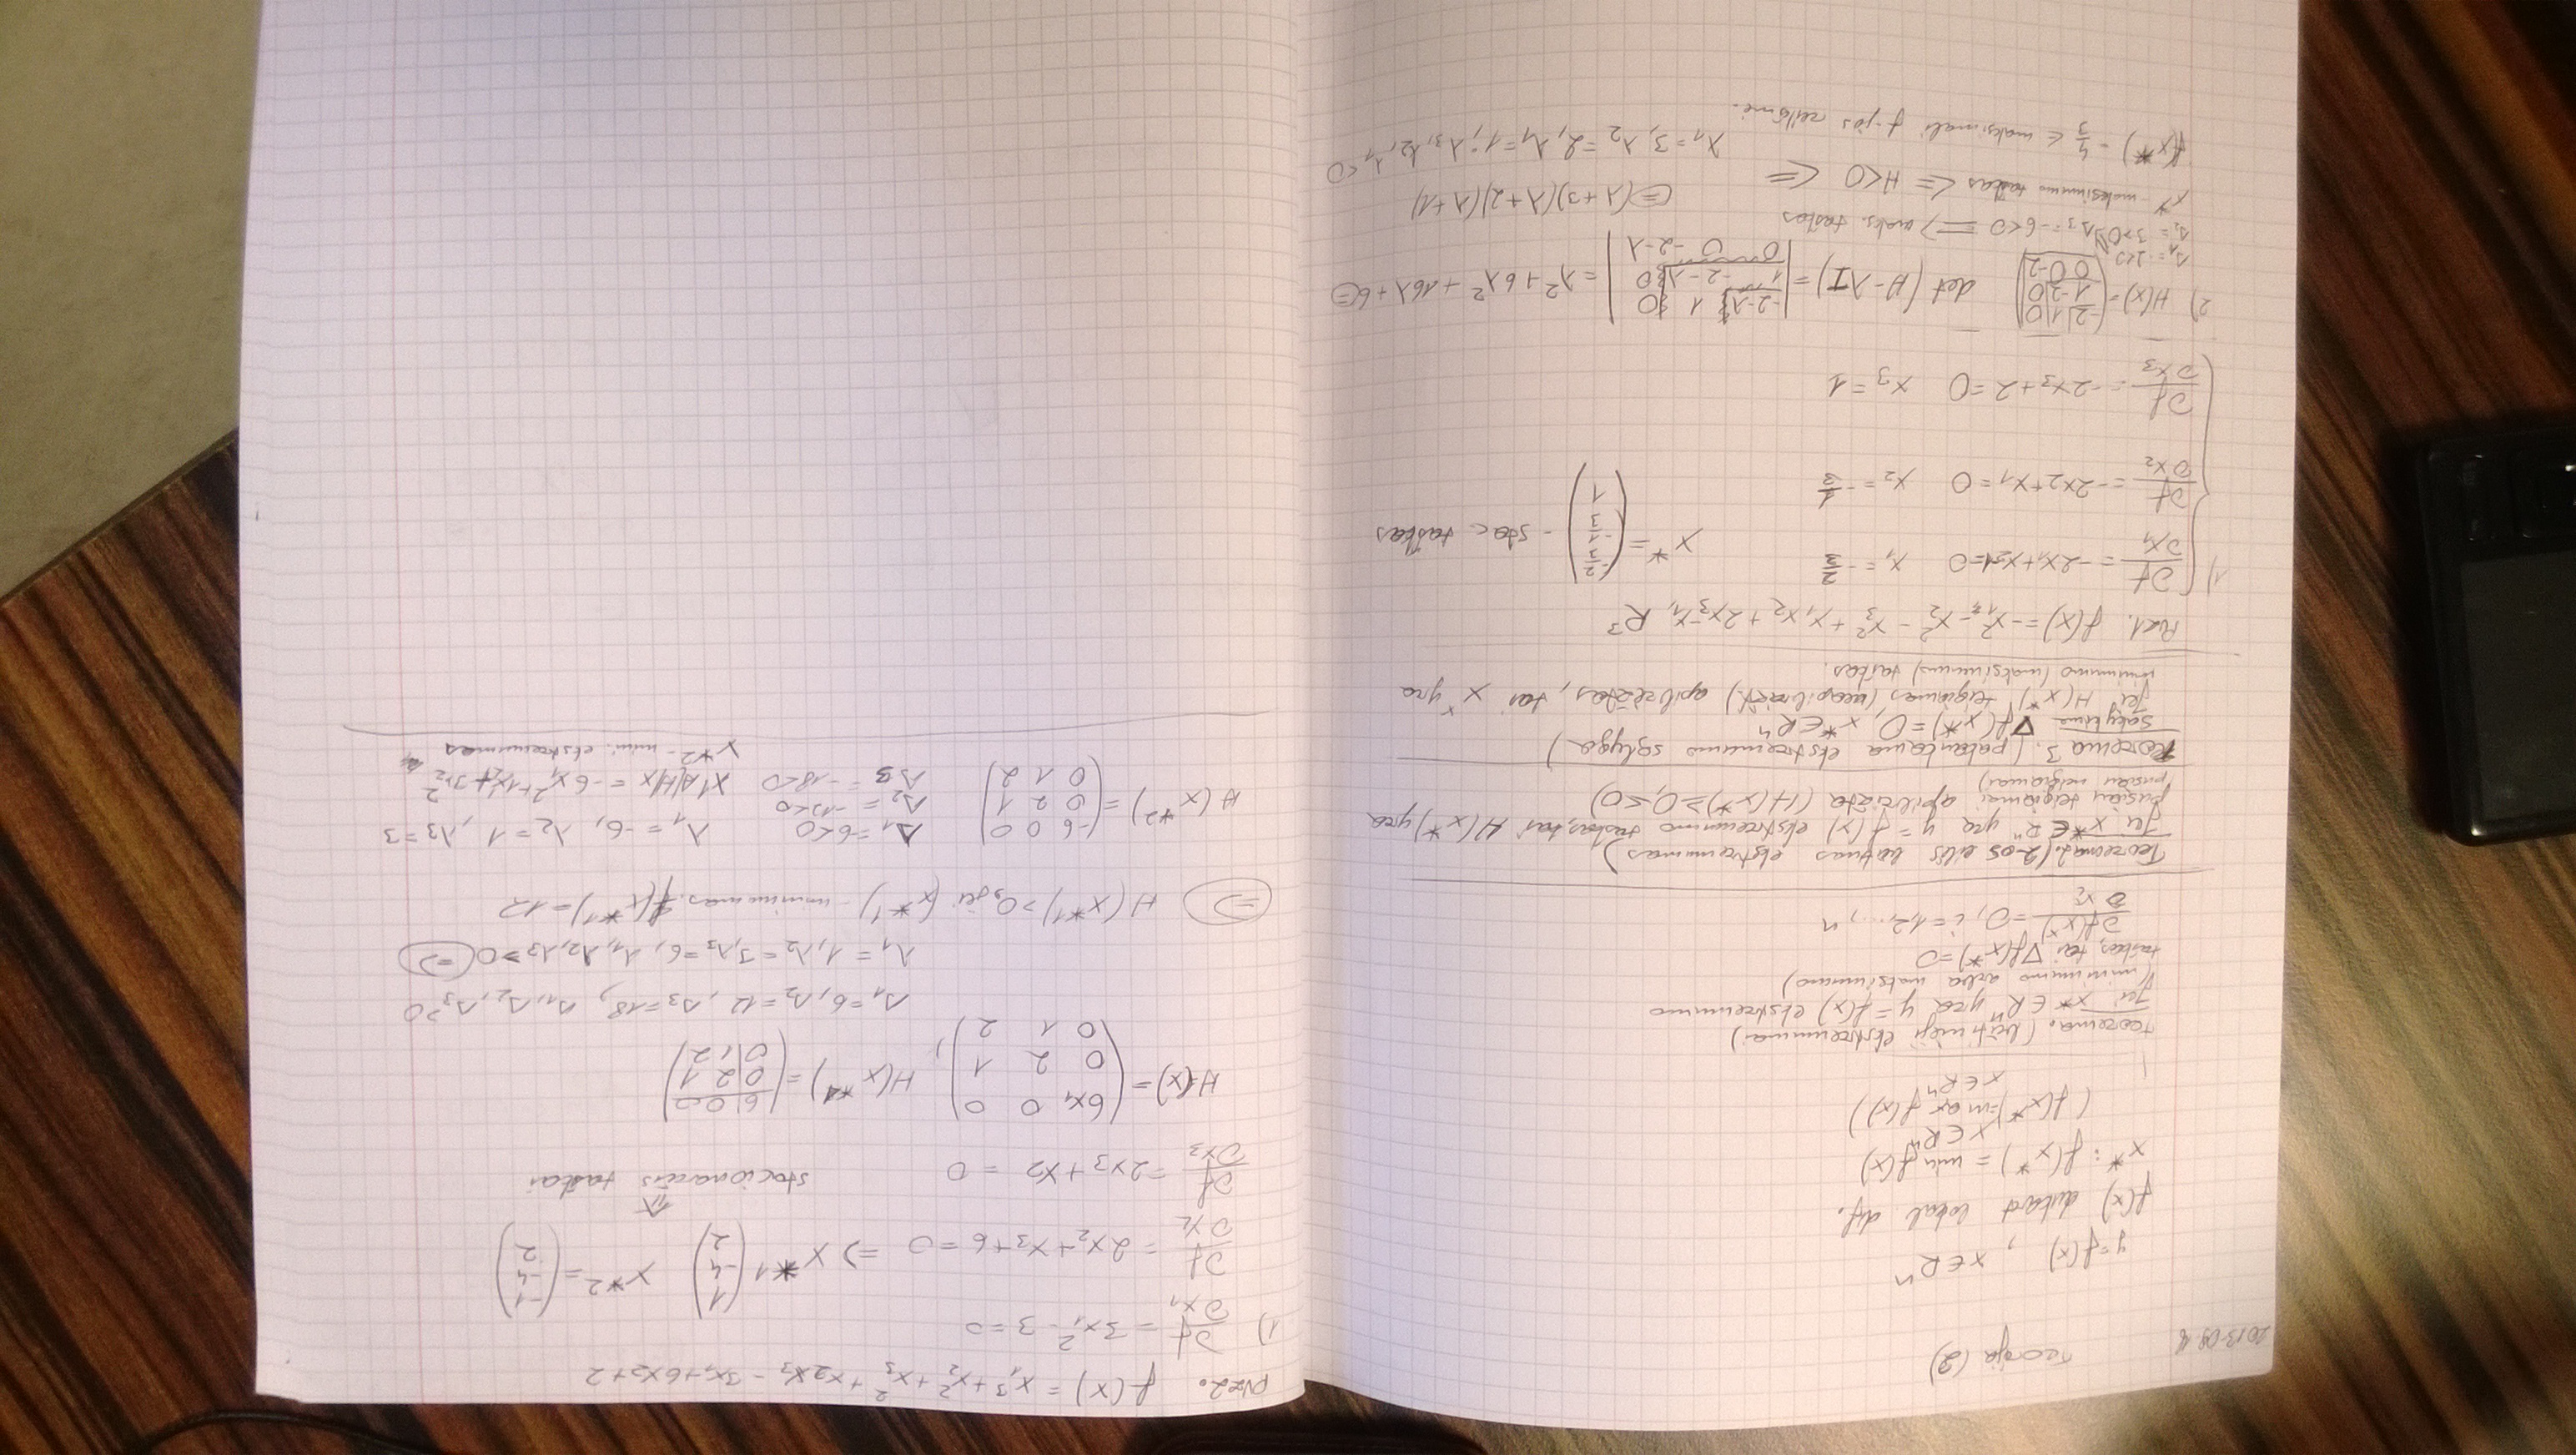 2013-09-18
Teorija (2)
y=f(x), x∈Rⁿ
f(x) dukart lokal dif.
x*: f(x*) = min f(x)
x∈Rⁿ
(f(x*)=max f(x))
x∈Rⁿ
teorema. (būtinieji ekstremumai)
Jei x*∈Rⁿ yra y=f(x) ekstremumo
(minimumo arba maksimumo)
taškas, tai ∇f(x*)=0
∂f(x*)/∂xᵢ = 0, i=1,2,...,n
Teorema2. (2-os eilės būtinas ekstremumas)
Jei x*∈Rⁿ yra y=f(x) ekstremumo taškas, tai H(x*) yra
pusiau teigiamai apibrėžta (H(x*)≥0, <0)
pusiau neigiamai)
Teorema 3. (pakankama ekstremumo sąlyga)
sakykime ∇f(x*)=0, x*∈Rⁿ
Jei H(x*) teigiamas apibrėžtas, tai x* yra
minimumo (maksimumo) taškas.
Pvz1. f(x)=-x₁²-x₂²-x₃²+x₁x₂+2x₃-x₁, R³
1) ∂f/∂x₁ = -2x₁+x₂-1=0 x₁=-2/3
x*=(-2/3 -1/3 1) - stac taškas
∂f/∂x₂ = -2x₂+x₁=0 x₂=-1/3
∂f/∂x₃ = -2x₃+2=0 x₃=1
2) H(x)=(-2 1 0; 1 -2 0; 0 0 -2) det(H-λI)=|-2-λ 1 0; 1 -2-λ 0; 0 0 -2-λ| =λ²+6λ²+16λ+6⊜
Δ₁=-2<0
Δ₂=3>0 Δ₃=-6<0 ⟹ maks. taškas
⊜(λ+3)(λ+2)(λ+1)
x* - maksimumo taškas ⟸ H<0 ⟸
λ₁=3, λ₂=2, λ₁=1; λ₃,λ₂,λ₁<0
f(x*) - 4/3 ∈ maksimali f-jos reikšmė.
pvz2. f(x) = x₁³+x₂²+x₃²+x₂x₃-3x₁+6x₂+2
1) ∂f/∂x₁ = 3x₁²-3=0
∂f/∂x₂ = 2x₂+x₃+6=0 ⇒ x*1 (1 -4 2) x*2=(-1 -4 2)
∂f/∂x₃ = 2x₃+x₂ = 0
stacionarūs taškai
H(x)=(6x₁ 0 0; 0 2 1; 0 1 2), H(x*1)=(6 0 0; 0 2 1; 0 1 2)
Δ₁=6, Δ₂=12, Δ₃=18, Δ₁,Δ₂,Δ₃>0
λ₁=1, λ₂=3, λ₃=6, λ₁,λ₂,λ₃>0 ⇒
⇒ H(x*1)>0, jei (x*1) - minimumas. f(x*1)=12
H(x*2)=(-6 0 0; 0 2 1; 0 1 2) Δ₁=-6<0 λ₁=-6, λ₂=1, λ₃=3
Δ₂=-12<0
Δ₃=-18<0
x*2 - nin. ekstremumas